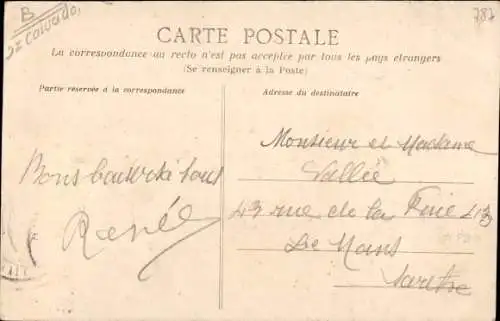 B
Calvados
787
CARTE POSTALE
La correspondance au recto n'est pas acceptée par tous les pays étrangers
(Se renseigner à la Poste)
Partie réservée à la correspondance
Adresse du destinataire
Bons baisers à tous
Renée
Monsieur et Madame
Vallée
43 rue de la
Le Mans
Sarthe